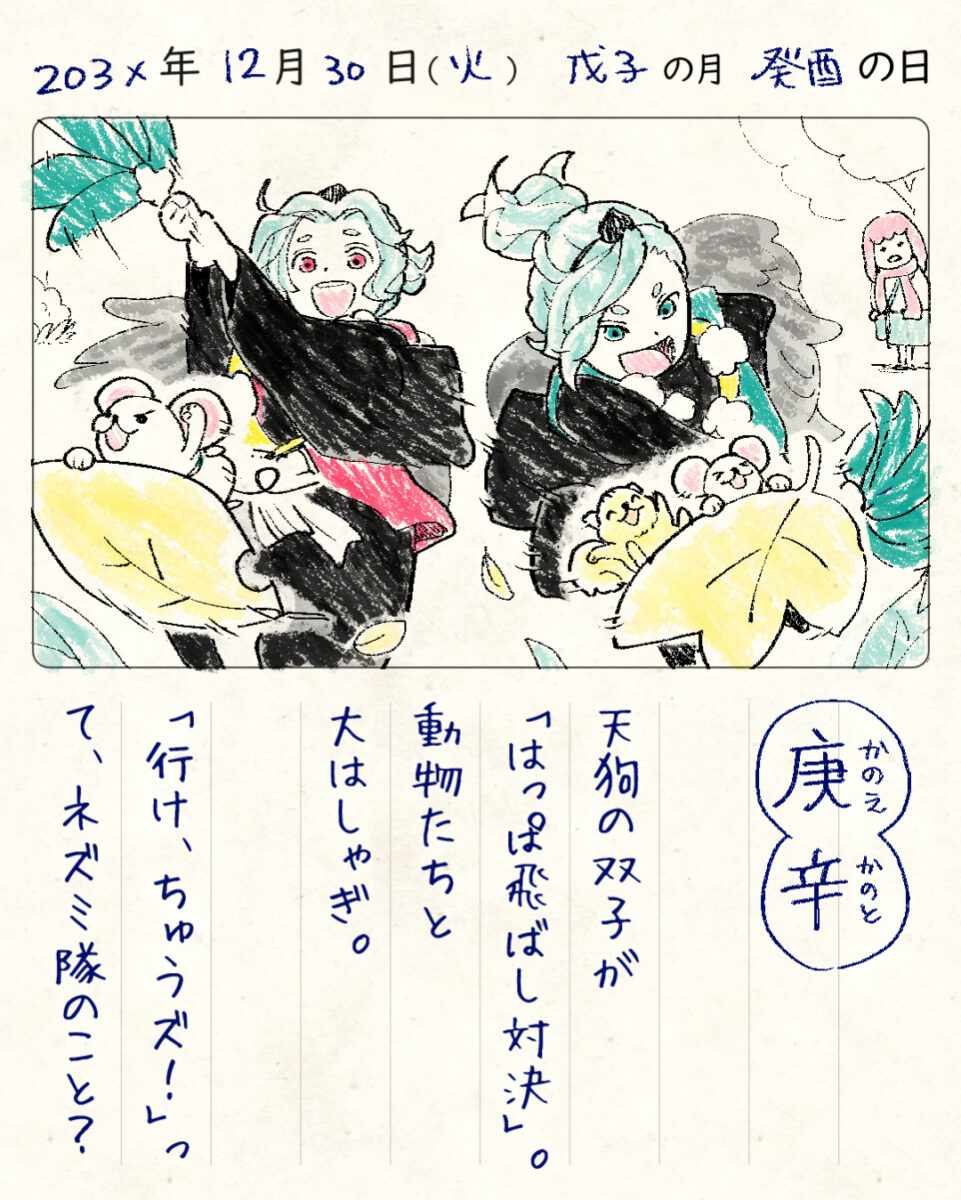 203x年 12月 30日(火) 戊子の月 癸酉の日
庚 かのえ
辛 かのと
天狗の双子が
「はっぱ飛ばし対決」。
動物たちと
大はしゃぎ。
「行け、ちゅうズ!」っ
て、ネズミ隊のこと?